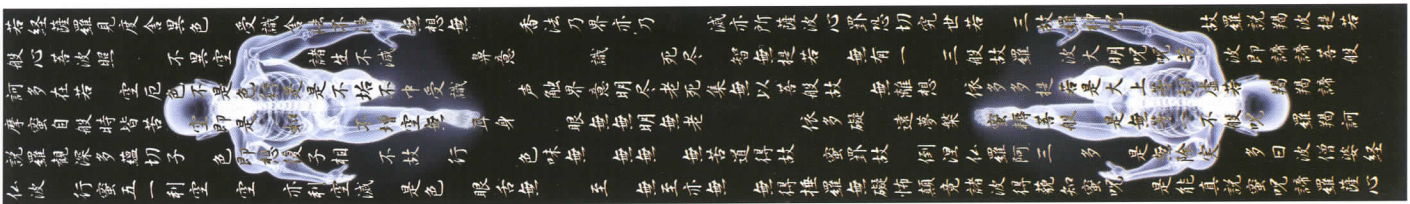 仏説摩訶般若
波羅蜜多心経
観自在菩薩
行深般若波羅
蜜多時照見
五蘊皆空度
一切苦厄舎
利子色不異
空空不異色
色即是空
空即是色受
想行識
亦復如是舎
利子是諸法
空相不生
不滅不垢不
不増不
減是故空
中無
色無受想
行識無
眼耳鼻
舌身意
無色声香
味触法
無眼界乃
至無意識界
無無明亦
無無明尽乃
至無老死
亦無老死尽
無苦集滅
道無智亦
無得以無所
得故菩提薩
埵依般若波
羅蜜多故心
無罣礙無罣
礙故無有恐
怖遠離一切
顛倒夢想究
竟涅槃三世
諸仏依般若
波羅蜜多故
得阿耨多羅
三藐三菩提
故知般若波羅
蜜多是大
呪是大明呪
是無上呪
是無等等呪
能除一切苦
真実不虚故
説般若波羅
蜜多呪即説
呪曰羯諦
羯諦波羅羯
諦波羅僧羯
諦菩提
薩婆訶
般若
心経